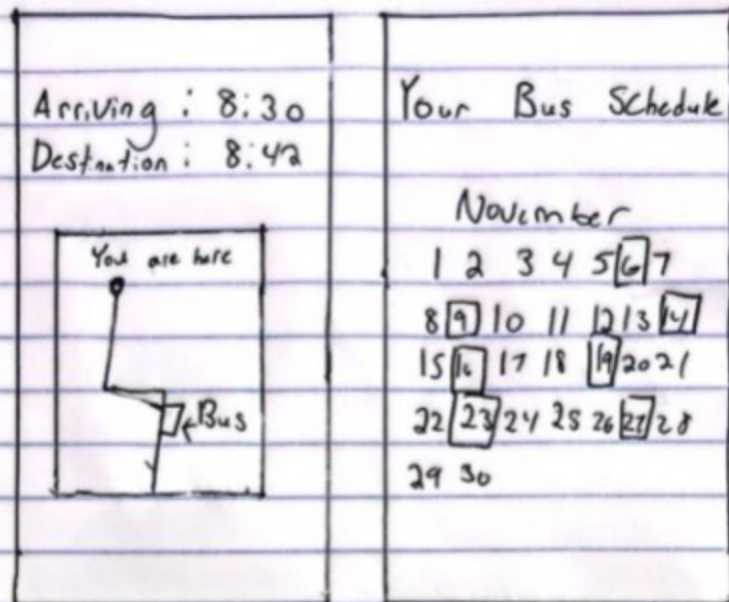 Arriving : 8:30
Destination : 8:42
You are here
←Bus
Your Bus Schedule
November
1 2 3 4 5 6 7
8 9 10 11 12 13 14
15 16 17 18 19 20 21
22 23 24 25 26 27 28
29 30